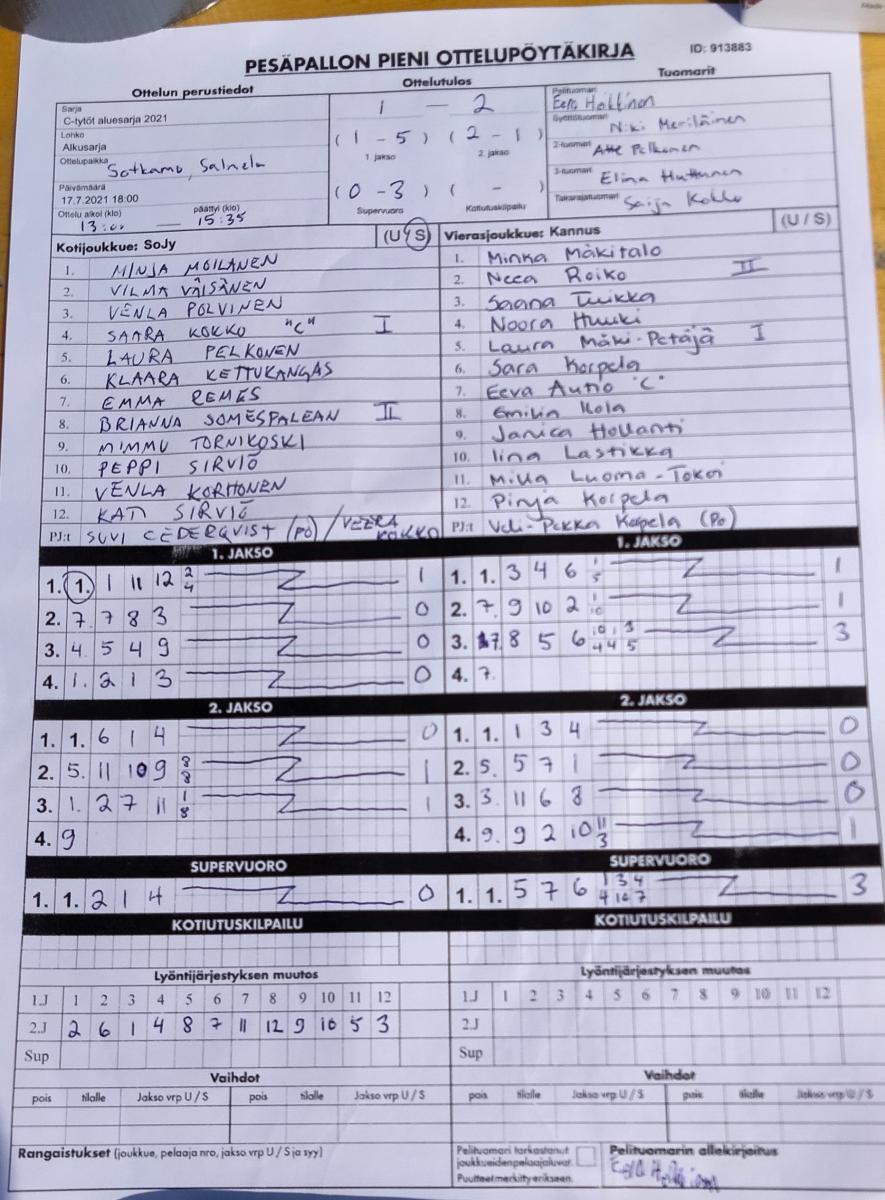 PESÄPALLON PIENI OTTELUPÖYTÄKIRJA
ID: 913883
Ottelun perustiedot
Sarja
C-tytöt aluesarja 2021
Lohko
Alkusarja
Ottelupaikka Sotkamo, Salmela
Päivämäärä
17.7.2021 18:00
Ottelu alkoi (klo) päättyi (klo)
13:00 — 15:35
Ottelutulos
1 — 2
(1 - 5) (2 - 1)
1. jakso 2. jakso
(0 - 3) ( - )
Supervuoro Kotiutuskilpailu
Tuomarit
Pelituomari Eero
Syöttötuomari Niki Meriläinen
2-tuomari Atte Pelkonen
3-tuomari Elina Huttunen
Takarajatuomari Saija Kokko
Kotijoukkue: SoJy (U/S)
1. MINJA MOILANEN
2. VILMA VÄISÄNEN
3. VENLA POLVINEN
4. SAARA KOKKO "C" I
5. LAURA PELKONEN
6. KLAARA KETTUKANGAS
7. EMMA REMES
8. BRIANNA SOMESPALEAN II
9. MIMMU TORNIKOSKI
10. PEPPI SIRVIÖ
11. VENLA KORHONEN
12. KATI SIRVIÖ
PJ:t SUVI CEDERQVIST (PÖ) / VEERA KOKKO
Vierasjoukkue: Kannus (U/S)
1. Minka Mäkitalo
2. Neea Roiko II
3. Saana Tuikka
4. Noora Huuki
5. Laura Mäki-Petäjä I
6. Sara Korpela
7. Eeva Autio "C"
8. Emilia Kola
9. Janica Hollanti
10. Iina Lastikka
11. Milla Luoma-Tokoi
12. Pinja Korpela
PJ:t Veli-Pekka Korpela (Pö)
1. JAKSO
1. 1. 1 11 12 2 4 1
2. 7. 7 8 3 0
3. 4. 5 4 9 0
4. 1. 2 1 3 0
1. JAKSO
1. 1. 3 4 6 1 5 1
2. 7. 9 10 2 1 10 1
3. 7. 8 5 6 10 1 3 4 4 5 3
4. 7.
2. JAKSO
1. 1. 6 1 4 0
2. 5. 11 10 9 8 8 1
3. 1. 2 7 11 1 8 1
4. 9
2. JAKSO
1. 1. 1 3 4 0
2. 5. 5 7 1 0
3. 3. 11 6 8 0
4. 9. 9 2 10 11 3 1
SUPERVUORO
1. 1. 2 1 4 0
SUPERVUORO
1. 1. 5 7 6 1 3 4 4 10 7 3
KOTIUTUSKILPAILU
KOTIUTUSKILPAILU
Lyöntijärjestyksen muutos
1.J 1 2 3 4 5 6 7 8 9 10 11 12
2.J 2 6 1 4 8 7 11 12 9 10 5 3
Sup
Lyöntijärjestyksen muutos
1.J 1 2 3 4 5 6 7 8 9 10 11 12
2.J
Sup
Vaihdot
pois tilalle Jakso vrp U / S pois tilalle Jakso vrp U / S
Vaihdot
pois tilalle Jakso vrp U / S pois tilalle Jakso vrp U / S
Rangaistukset (joukkue, pelaaja nro, jakso vrp U / S ja syy)
Pelituomari tarkastanut
joukkueiden pelaajaluvat.
Puutteet merkitty erikseen.
Pelituomarin allekirjoitus